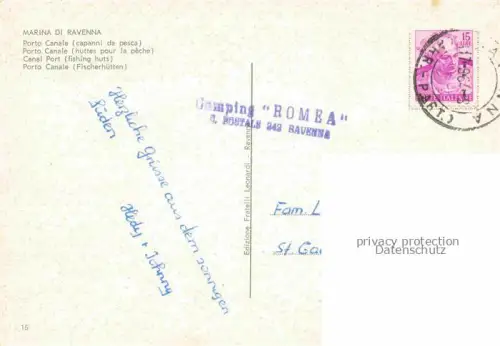 MARINA DI RAVENNA
Porto Canale (capanni da pesca)
Porto Canale (huttes pour la pêche)
Canal Port (fishing huts)
Porto Canale (Fischerhütten)
15
Camping "ROMEA"
C. POSTALE 242 RAVENNA
Herzliche Grüsse aus dem sonnigen
Süden
Hedy + Johnny
Edizione Fratelli Leonardi - Ravenna
Fam. L
St. Ga
privacy protection
Datenschutz
16